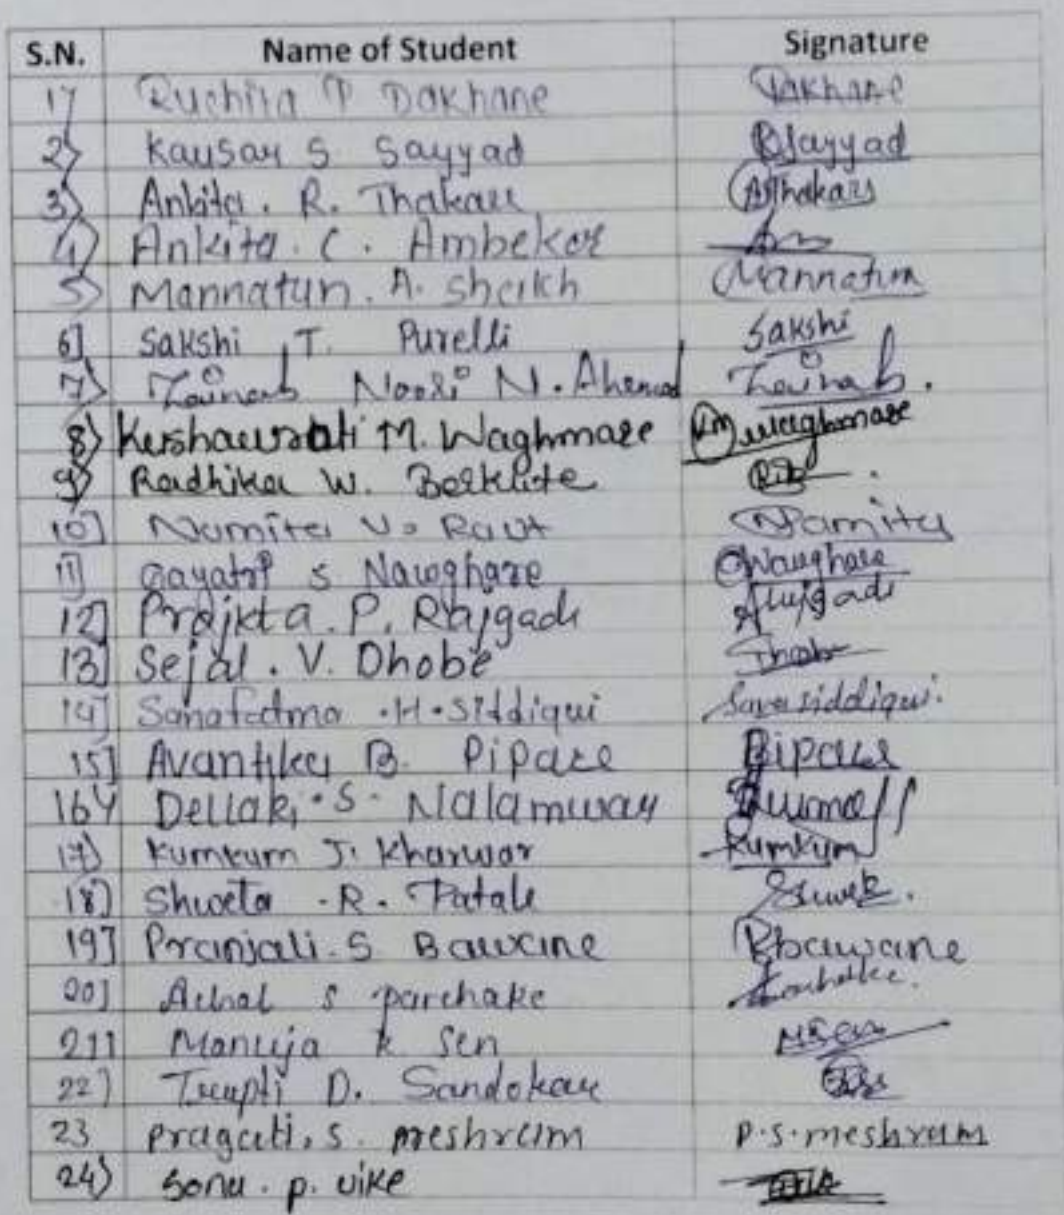 S.N. Name of Student Signature
1) Ruchita P Dakhane Dakhane
2) Kausar S Sayyad Sayyad
3) Ankita . R. Thakare AThakare
4) Ankita . C . Ambekar
5) Mannatun . A . Sheikh Mannatun
6] Sakshi T. Purelli Sakshi
7) Zainab Noori N. Ahemad Zainab.
8) M. Waghmare Waghmare
9) Radhika W.
10] Namita V. Raut Namita
11] Gayatri S Nawghare Nawghare
12] Prajkta . P. Rajgade
13] Sejal . V. Dhobe
14] Sanafatma . H . Siddiqui Sana siddiqui.
15] Avantika B. Pipare Pipare
16) S.
17) Kumkum J. Kharwar Kumkum
18] Shweta . R. Fatale
19] Pranjali . S Bawane Pbawane
20] Achal S parchake
21] Manuja k Sen
22] Trupti D. Sandokar
23 pragati . s. meshram p.s.meshram
24) sonu . p. uike